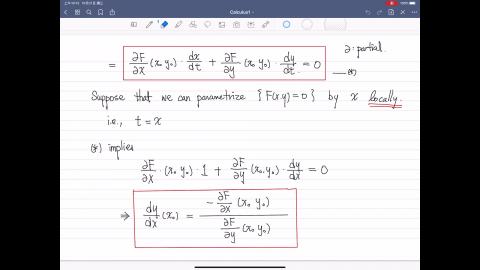 Calculus1
= ∂F/∂x (x₀ y₀) · dx/dt + ∂F/∂y (x₀ y₀) · dy/dt = 0 —(*)
∂: partial.
Suppose that we can parametrize {F(x.y)=0} by x locally.
i.e., t = x
(*) implies
∂F/∂x (x₀ y₀) · 1 + ∂F/∂y (x₀ y₀) · dy/dx = 0
⇒ dy/dx (x₀) = -∂F/∂x (x₀ y₀) / ∂F/∂y (x₀ y₀)